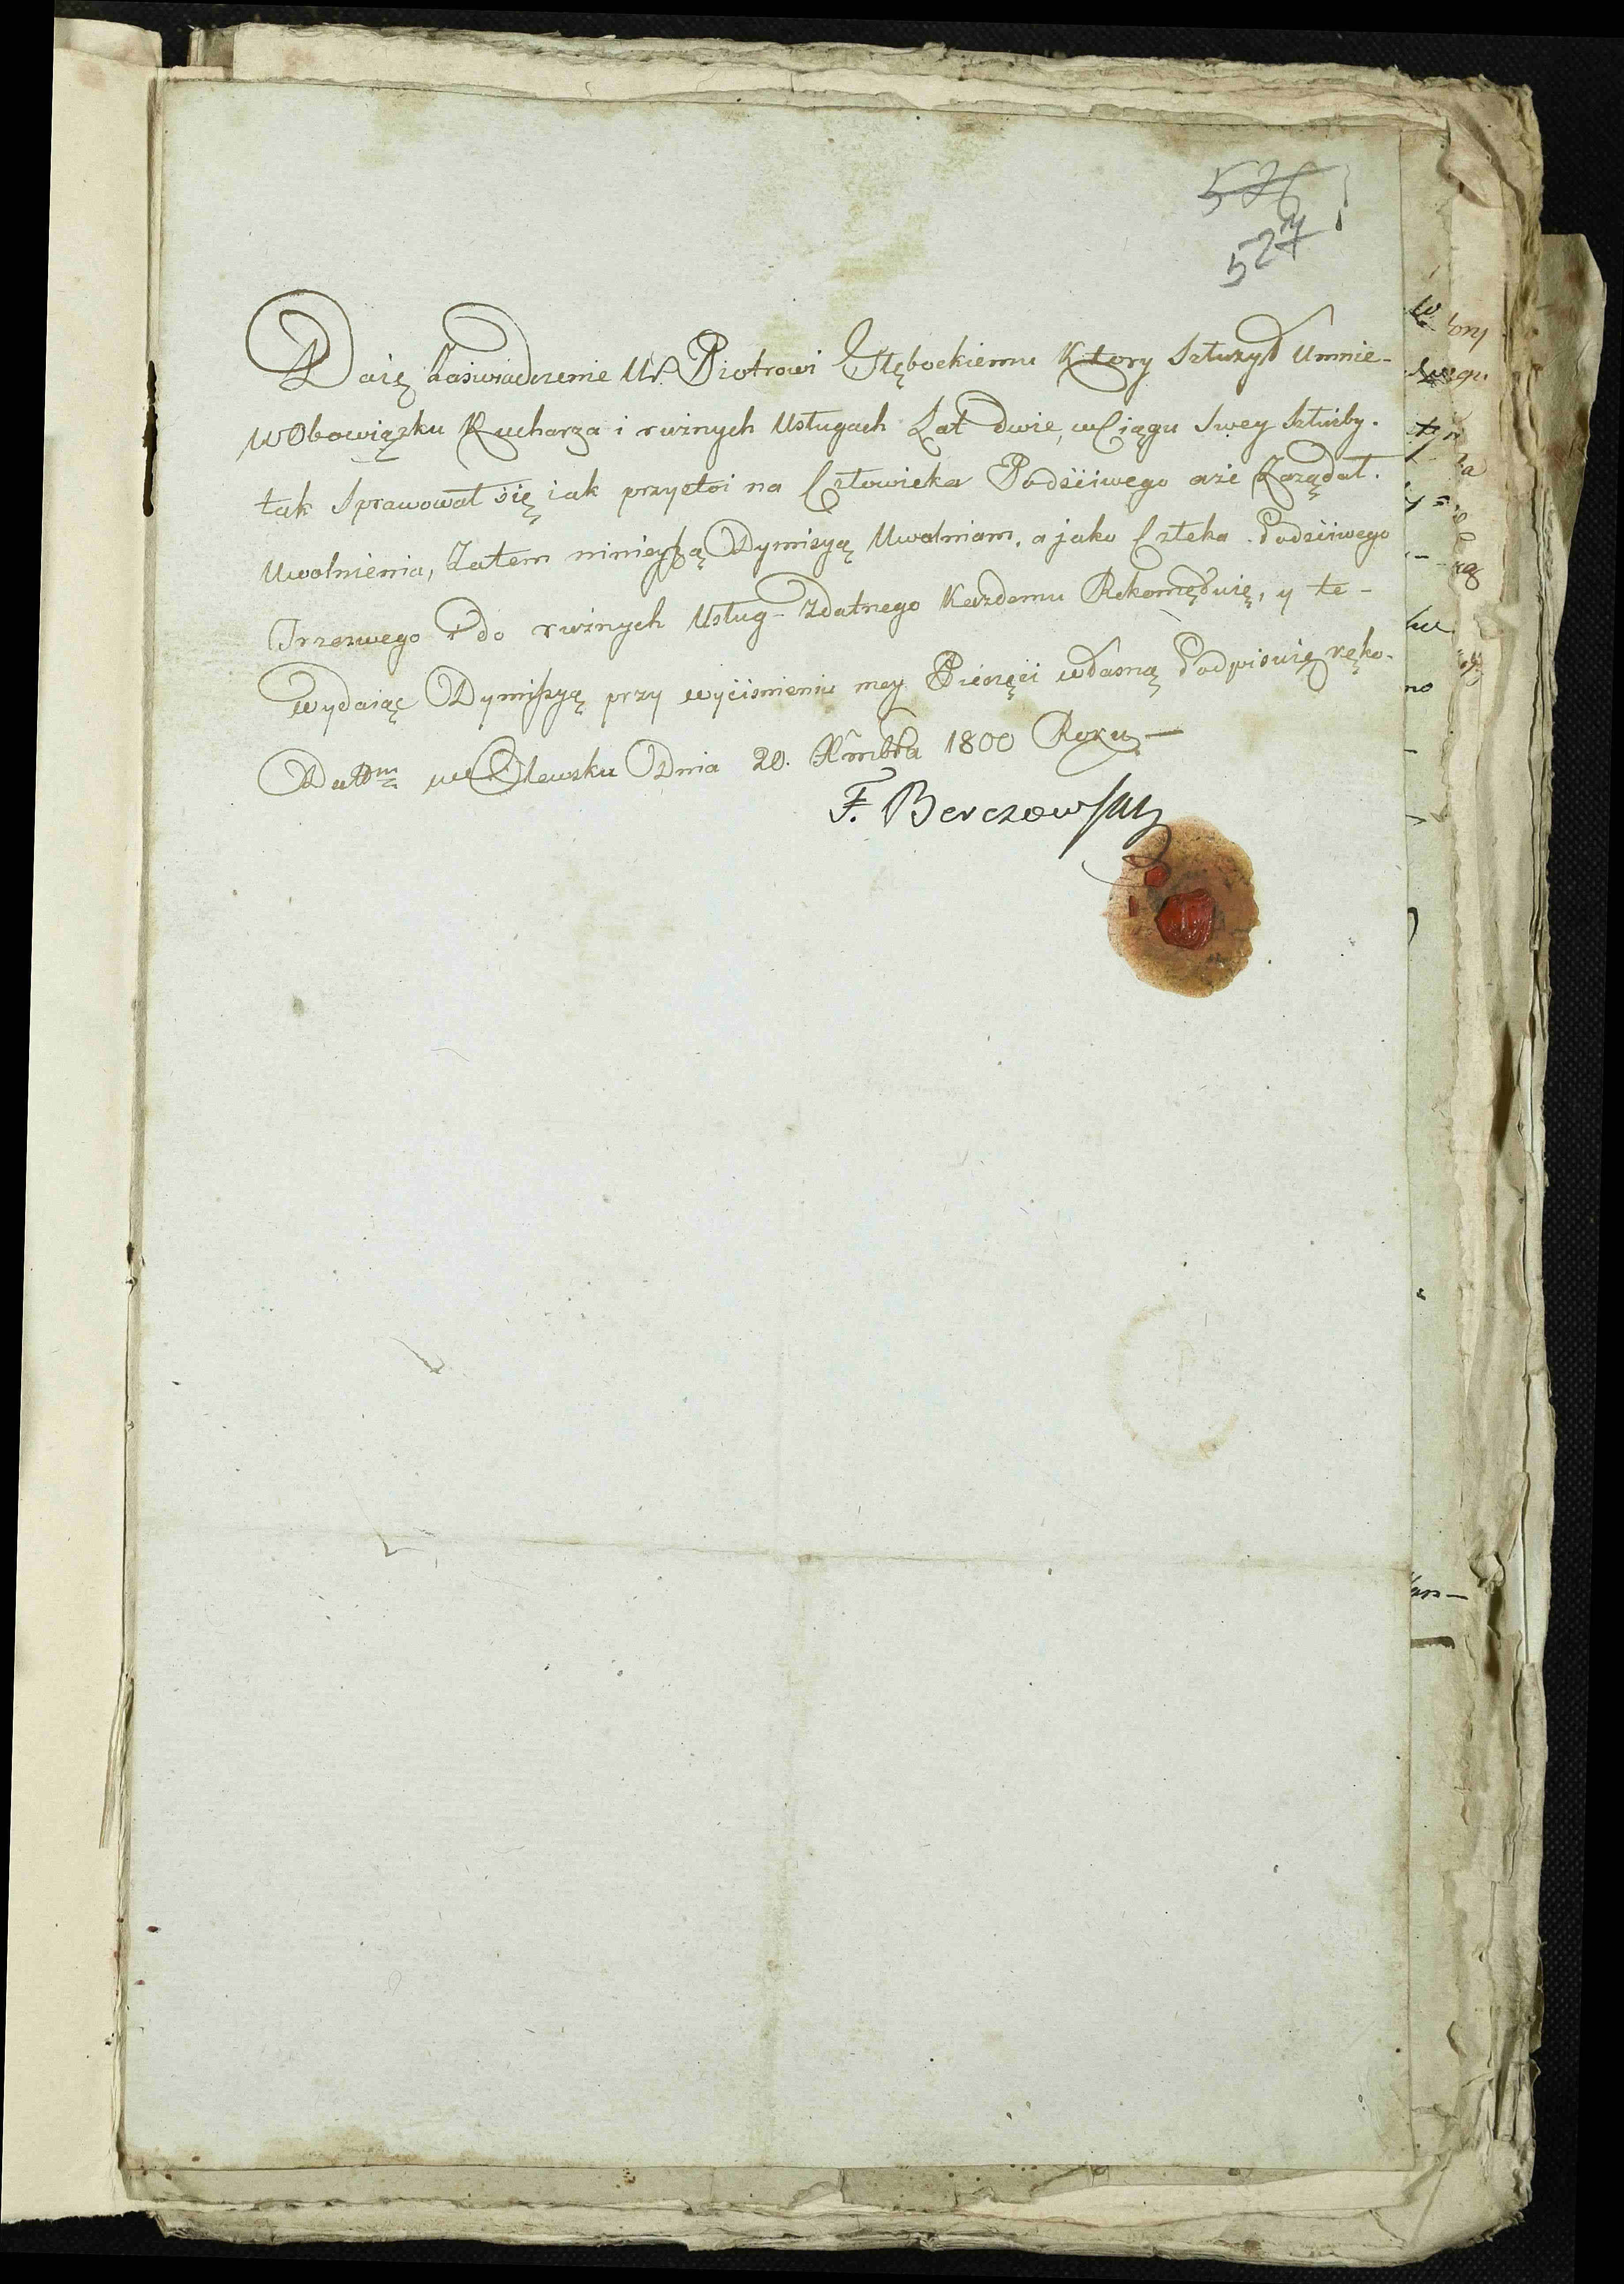 526
527
Daię Zaswiadczenie Ur. Piotrowi Głębockiemu Ktory Szłużył Umnie-
w Obowiązku Kucharza i rużnych Usługach Lat dwie, w Ciągu Swey Szłużby.
tak Sprawował się iak przystoi na Człowieka Podściwego aże Zarządał.
Uwolnienia, Zatem ninieyszą Dymisyą Uwalniam, a jako Człeka Podściwego
Trzezwego i do rużnych Usług - Zdatnego Każdemu Rekomęduię, y te-
wydaiąc Dymissyą przy wyciśnieniu mey Pieczęci własną Podpisuię ręką.
Datt w Olewsku Dnia 20. Xmbra 1800 Roku -
F. Berezowsky